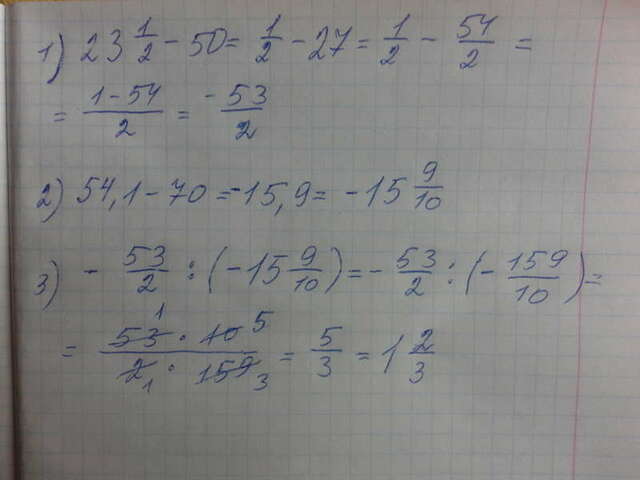 1) 23 1/2 - 50 = 1/2 - 27 = 1/2 - 54/2 =
= (1 - 54)/2 = -53/2
2) 54,1 - 70 = -15,9 = -15 9/10
3) - 53/2 : (-15 9/10) = - 53/2 : (- 159/10) =
= (53 1 · 10 5)/(2 1 · 159 3) = 5/3 = 1 2/3